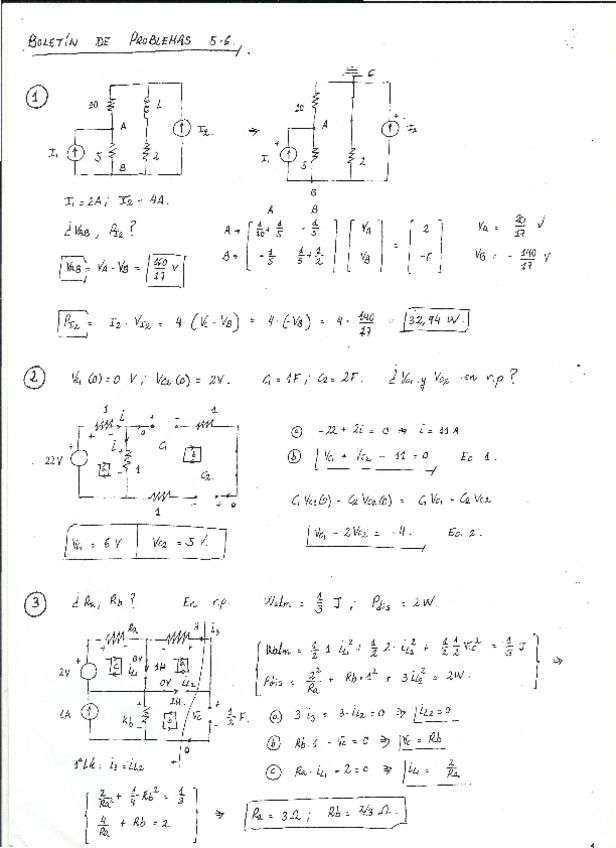 BOLETÍN DE PROBLEMAS 5-6.
1
20 L I2
A
I1 5 2
B
⇒
C
20 A I2
I1 5 2
B
I1 = 2A ; I2 = 4A.
¿VAB, PI2 ?
VAB = VA - VB = 160/17 V
A B
A → 1/20 + 1/5 - 1/5 VA 2
B → - 1/5 1/5 + 1/2 VB = -6
VA = 20/17 ✓
VB = - 140/17 V
PI2 = I2 · VI2 = 4 (VC - VB) = 4 · (-VB) = 4 · 140/17 = 32,94 W.
2 VC1 (0) = 0 V ; VC2 (0) = 2V. C1 = 1F ; C2 = 2F. ¿ VC1 y VC2 en r.p ?
1 i 0 C1 1
22V i 1 a b C2
1 0
a -22 + 2i = 0 ⇒ i = 11 A
b VC1 + VC2 - 11 = 0 Ec 1.
C1 VC1(0) - C2 VC2(0) = C1 VC1 - C2 VC2
VC1 - 2VC2 = -4. Ec. 2.
VC1 = 6 V VC2 = 5 V.
3 ¿ Ra, Rb ? En r.p. Walm = 1/3 J ; Pdis = 2W.
Ra 3 i3
2V c 0V iL1 1H a
0V iL2
2H.
1A Rb b VC 1/2 F.
0
1ª LK : i3 = iL2
Walm = 1/2 1 iL1² + 1/2 2 · iL2² + 1/2 1/2 VC² = 1/3 J
Pdis = 2²/Ra + Rb · 1² + 3 iL2² = 2W. ⇒
a 3 · i3 = 3 · iL2 = 0 ⇒ iL2 = 0
b Rb · 1 - VC = 0 ⇒ VC = Rb
c Ra · iL1 - 2 = 0 ⇒ iL1 = 2/Ra
2/Ra² + 1/4 · Rb² = 1/3
4/Ra + Rb = 2
⇒ Ra = 3 Ω ; Rb = 2/3 Ω.